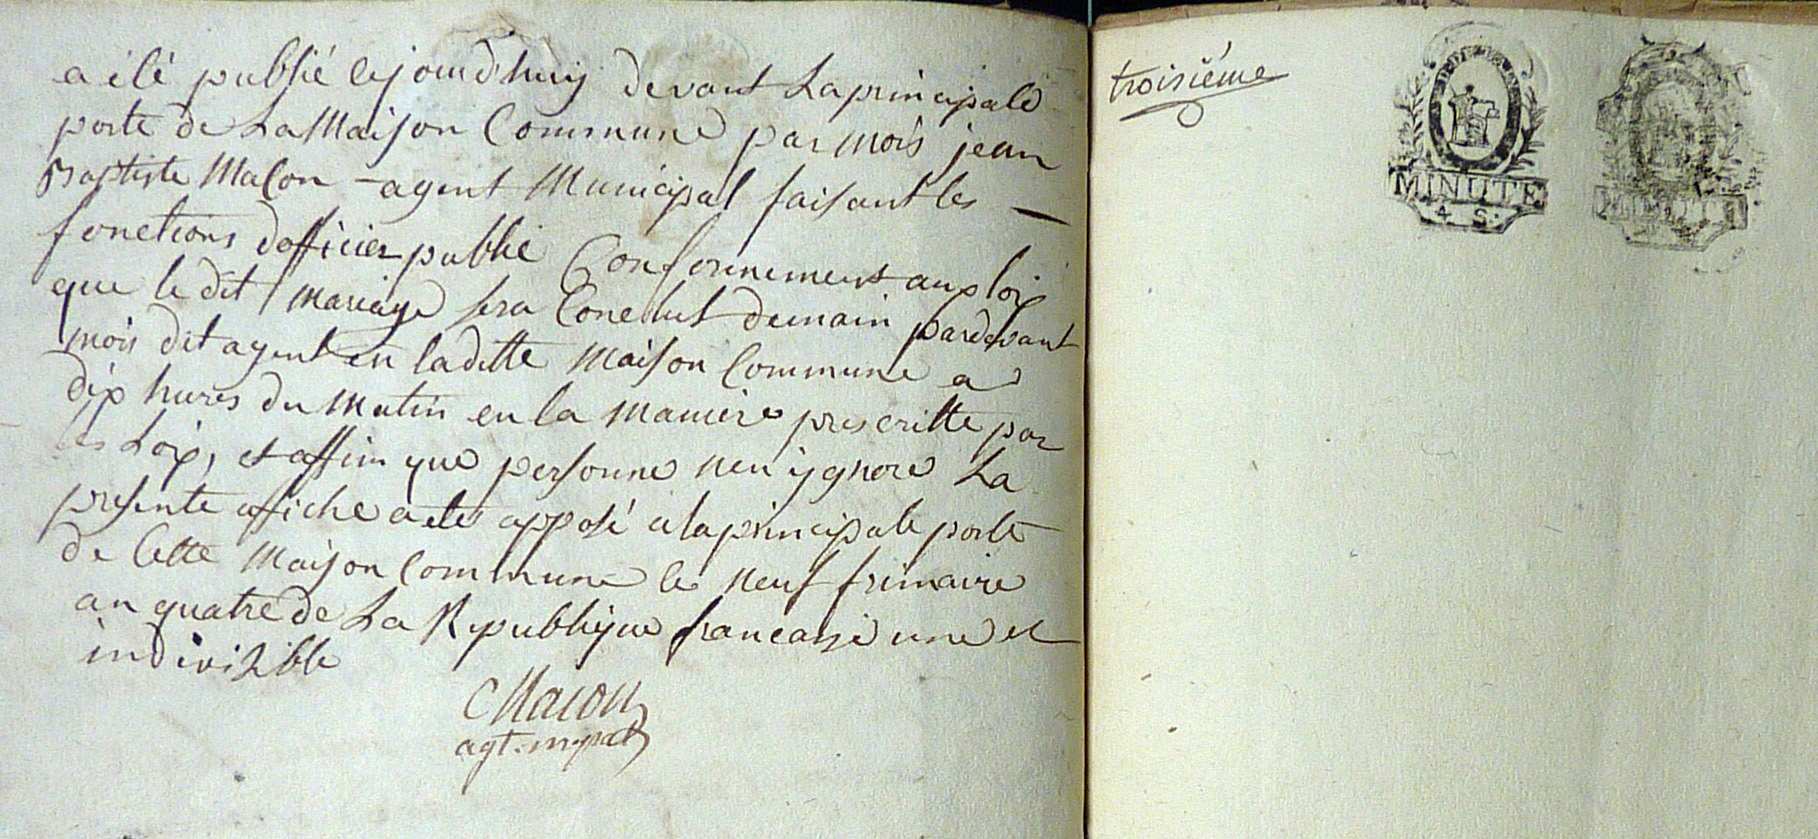 a été publié cejourdhuy devant La principale
porte de La Maison Commune par mois jean
Baptiste Macon - agent Municipal faisant les —
fonctions dofficier public Conformement aux loix
que le dit Mariage sera Conclut demain pardevant
mois dit agent en laditte Maison Commune a
dix hures du Matin en la Maniere prescritte par
les Loix, et affin que personne nen ygnore La
presente affiche a eté apposé a la principale porte
de Cette Maison Commune le neuf frimaire
an quatre de La Republique francaise une et
indivisible
Macon
agt. mpal
troisième
MINUTE
4 S.
MINUTE